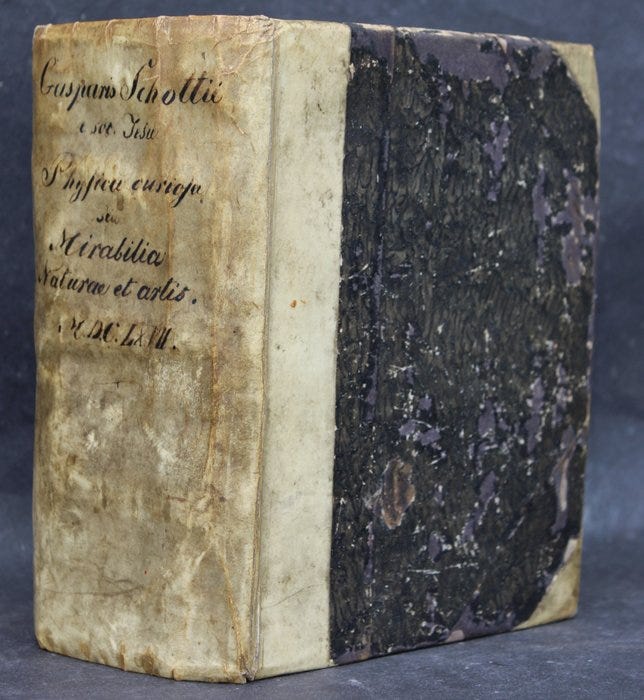 Gasparis Schottii
e soc. Jesu
Physica curiosa
seu
Mirabilia
Naturae et artis.
M.DC.LXVII.